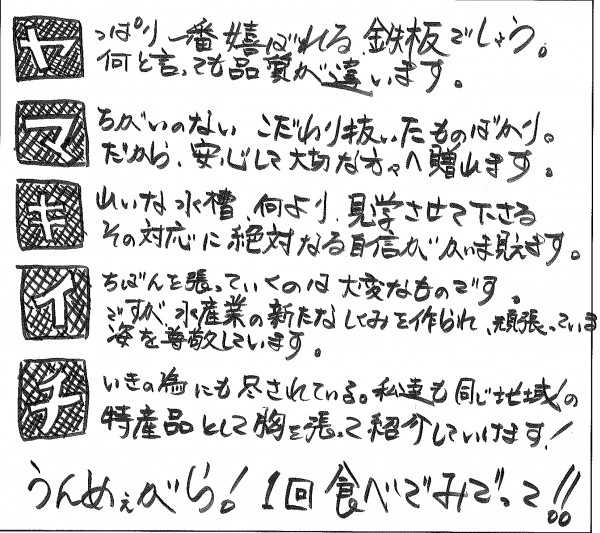 ヤっぱり一番嬉ばれる鉄板でしょう。
何と言っても品質が違います。
マちがいのない こだわり抜いたものばかり。
だから、安心して大切な方々へ贈れます。
キれいな水槽、何より、見学させて下さる
その対応に絶対なる自信がかいま見えます。
イちばんを張っていくのは大変なものです。
ですが、水産業の新たなしくみを作られ、頑張っている
姿を尊敬しています。
チいきの為にも尽されている。私達も同じ地域の
特産品として胸を張って紹介していけます!
うんめぇがら! 1回食べでみでって!!